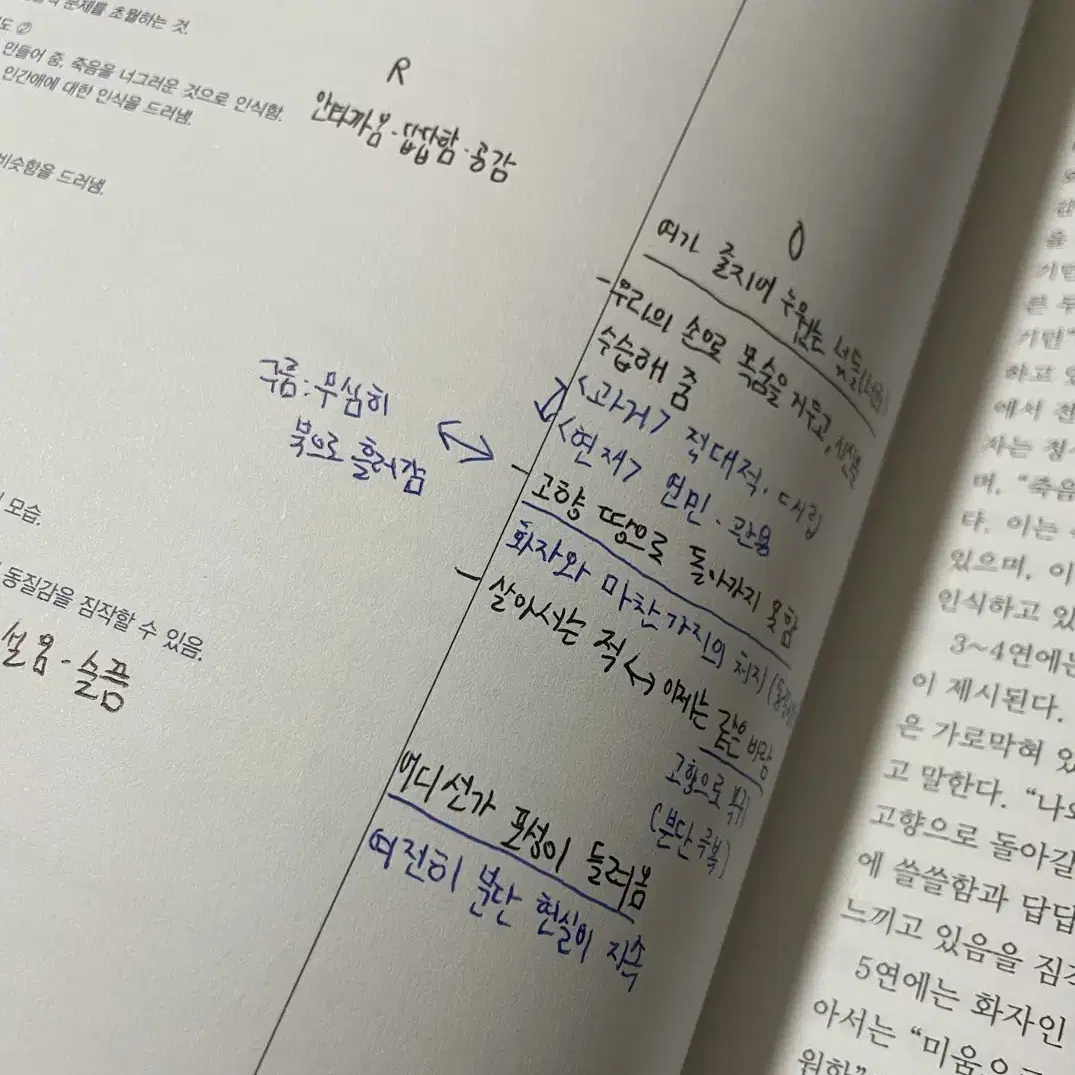 문제를 초월하는 것.
도 ②
만들어 줌. 죽음을 너그러운 것으로 인식함.
인간애에 대한 인식을 드러냄.
비슷함을 드러냄.
R
안타까움·답답함·공감
구름: 무심히
북으로 흘러감
모습.
동질감을 짐작할 수 있음.
설움·슬픔
O
여기 줄지어 누웠는 넋들
우리의 손으로 목숨을 거두고, 시신을
수습해 줌
<과거> 적대적·대립
<현재> 연민·관용
고향 땅으로 돌아가지 못함
화자와 마찬가지의 처지
살아서는 적 ↔ 이제는 같은 바람
고향으로 복귀
(분단 극복)
어디선가 포성이 들려옴
여전히 분단 현실이 지속
을
기만
큰
기만"
하고
에서
자는
며. "죽음
다. 이는
있으며, 이
인식하고 있
3~4연에는
이 제시된다.
은 가로막혀 있
고 말한다. "나와
고향으로 돌아길
에 쓸쓸함과 답답
느끼고 있음을 짐
5연에는 화자인
아서는 "미움으로
원한"